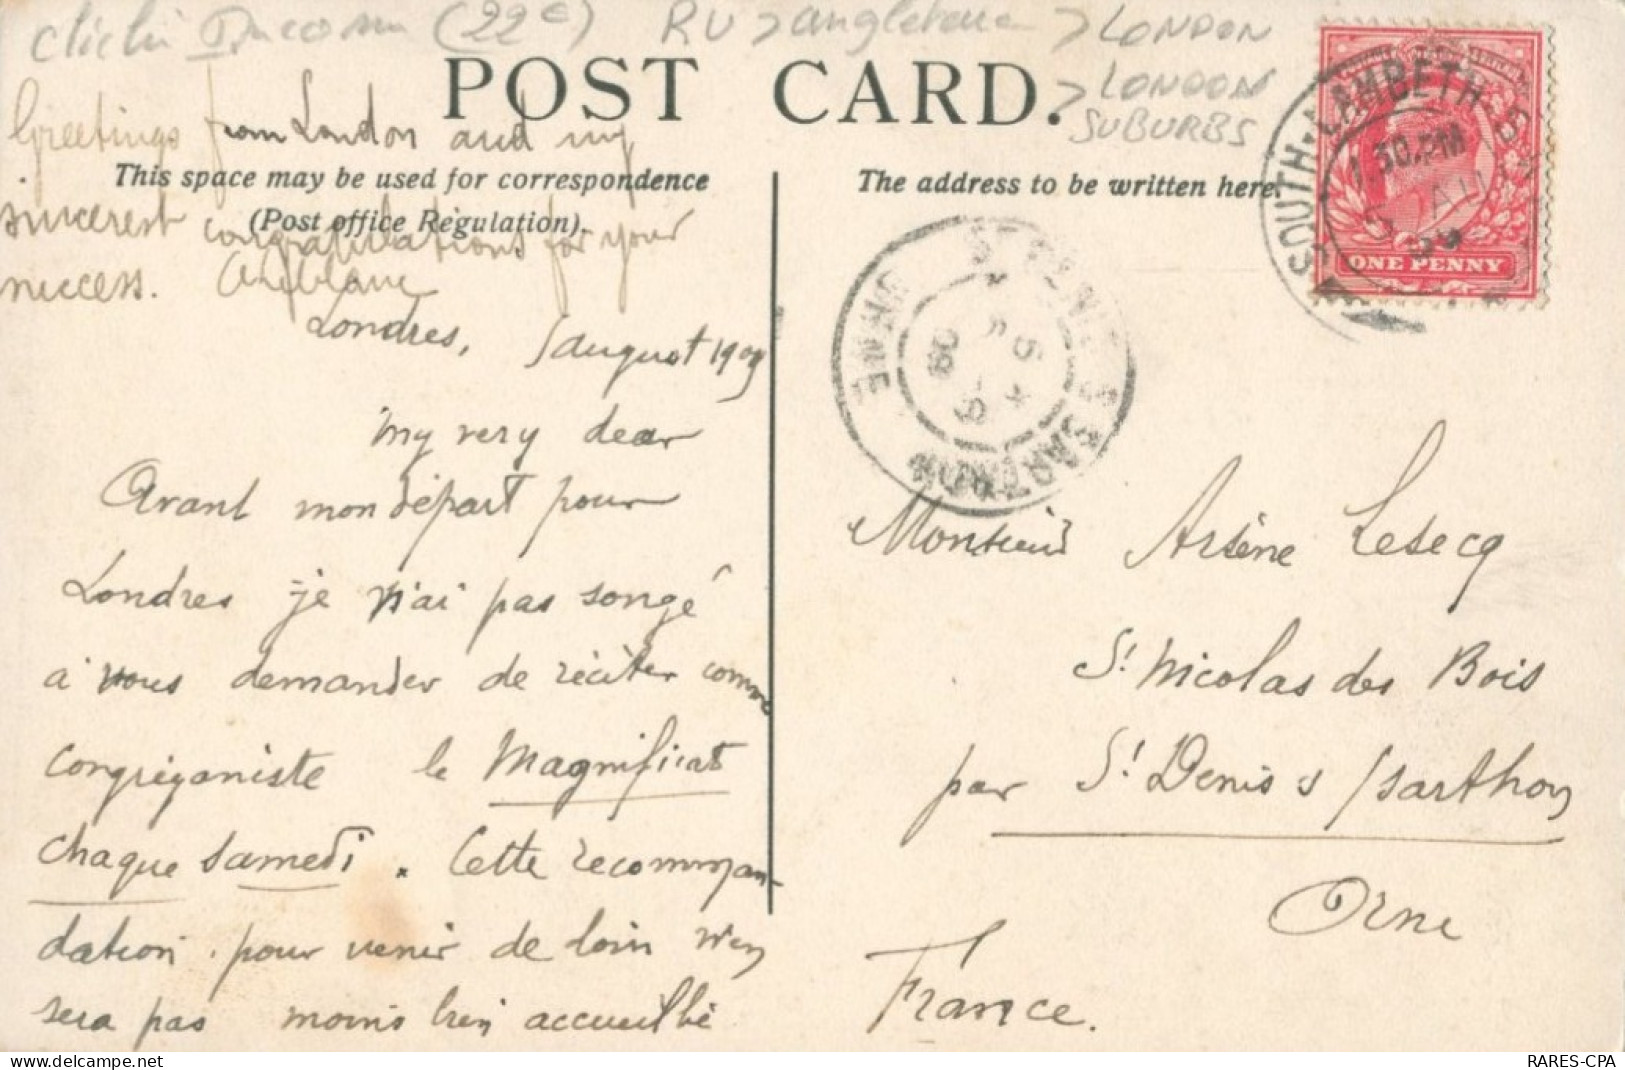 (22€) RU > angleterre > LONDON
> LONDON
SUBURBS
POST CARD.
Greetings from London and my
This space may be used for correspondence
sincerest congratulations for your
(Post office Regulation).
success.
Londres, 5 august 1909
My very dear
Avant mon départ pour
Londres je n'ai pas songé
à vous demander de réciter comme
congréganiste le Magnificat
chaque samedi. Cette recomman-
dation pour venir de loin n'en
sera pas moins bien accueillie
The address to be written here.
SOUTH-LAMBETH
1.30.PM
5 AU
09
ONE PENNY
ST DENIS S SARTHON
ORNE
Monsieur Arsène Lesecq
St Nicolas des Bois
par St Denis s/sarthon
Orne
France.
RARES-CPA
www.delcampe.net